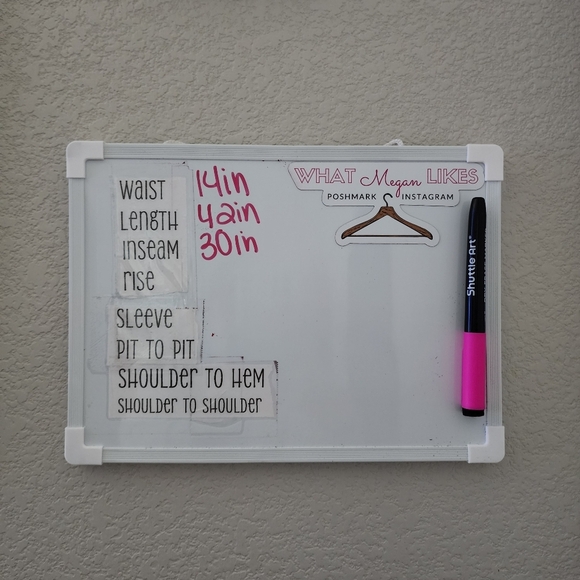 WHAT Megan LIKES
POSHMARK INSTAGRAM
WAIST 14in
LENGTH 42in
INSEAM 30in
RISE
SLEEVE
PIT TO PIT
SHOULDER TO HEM
SHOULDER TO SHOULDER
Shuttle Art